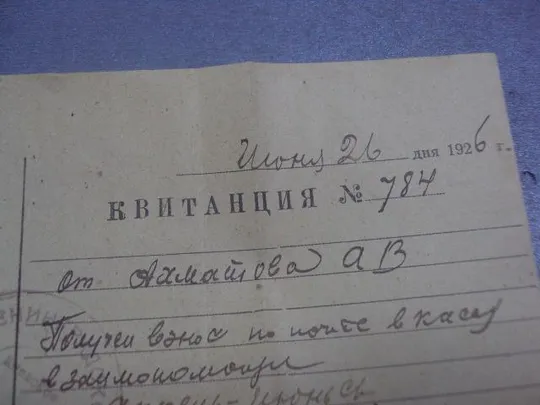 Июня 26 дня 1926 г.
КВИТАНЦИЯ № 784
от Ахматова А В
Получен взнос по почте в кассу
взаимопомощи